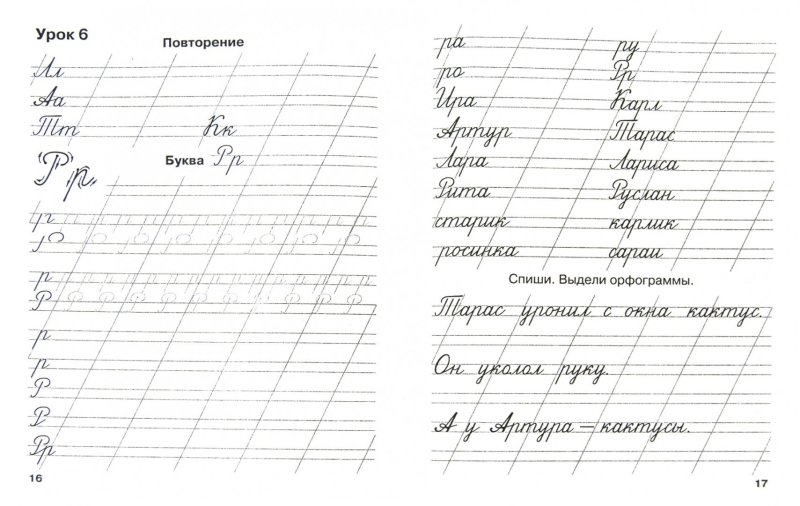 Урок 6
Повторение
Лл
Аа
Тт Кк
Буква Рр
Рр
р
р
Р
р
р
Р
Р
Рр
16
ра ру
ро Рр
Ира Карл
Артур Тарас
Лара Лариса
Рита Руслан
старик карлик
росинка сараи
Спиши. Выдели орфограммы.
Тарас уронил с окна кактус.
Он уколол руку.
А у Артура – кактусы.
17